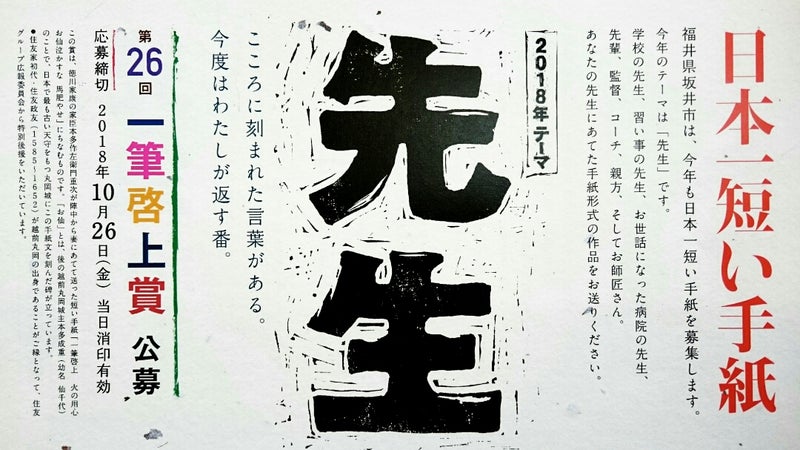 日本一短い手紙
福井県坂井市は、今年も日本一短い手紙を募集します。
今年のテーマは「先生」です。
学校の先生、習い事の先生、お世話になった病院の先生、
先輩、監督、コーチ、親方、そしてお師匠さん。
あなたの先生にあてた手紙形式の作品をお送りください。
2018年 テーマ
先生
こころに刻まれた言葉がある。
今度はわたしが返す番。
第26回 一筆啓上賞 公募
応募締切 2018年10月26日(金) 当日消印有効
この賞は、徳川家康の家臣本多作左衛門重次が陣中から妻にあてて送った短い手紙「一筆啓上 火の用心
お仙泣かすな 馬肥やせ」にちなむものです。「お仙」とは、後の越前丸岡城主本多成重(幼名 仙千代)
のことで、日本で最も古い天守をもつ丸岡城にこの手紙文を刻んだ碑が立っています。
●住友家初代・住友政友(1585~1652)が越前丸岡の出身であることがご縁となって、住友
グループ広報委員会から特別後援をいただいています。